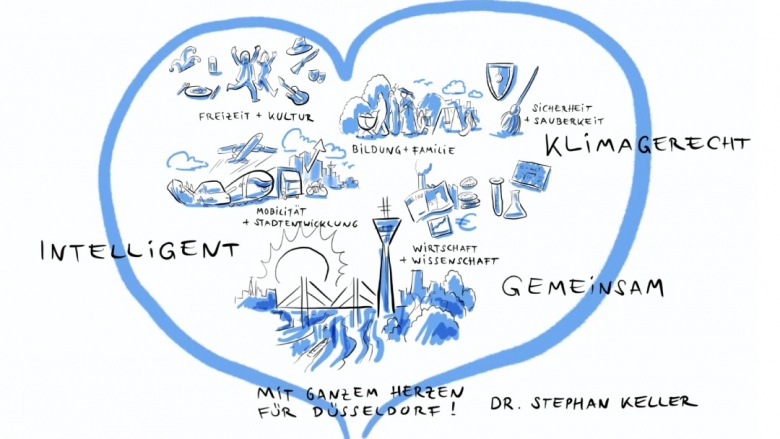 FREIZEIT + KULTUR
BILDUNG + FAMILIE
SICHERHEIT
+ SAUBERKEIT
KLIMAGERECHT
MOBILITÄT
+ STADTENTWICKLUNG
INTELLIGENT
€
WIRTSCHAFT
+ WISSENSCHAFT
GEMEINSAM
MIT GANZEM HERZEN
FÜR DÜSSELDORF!
DR. STEPHAN KELLER